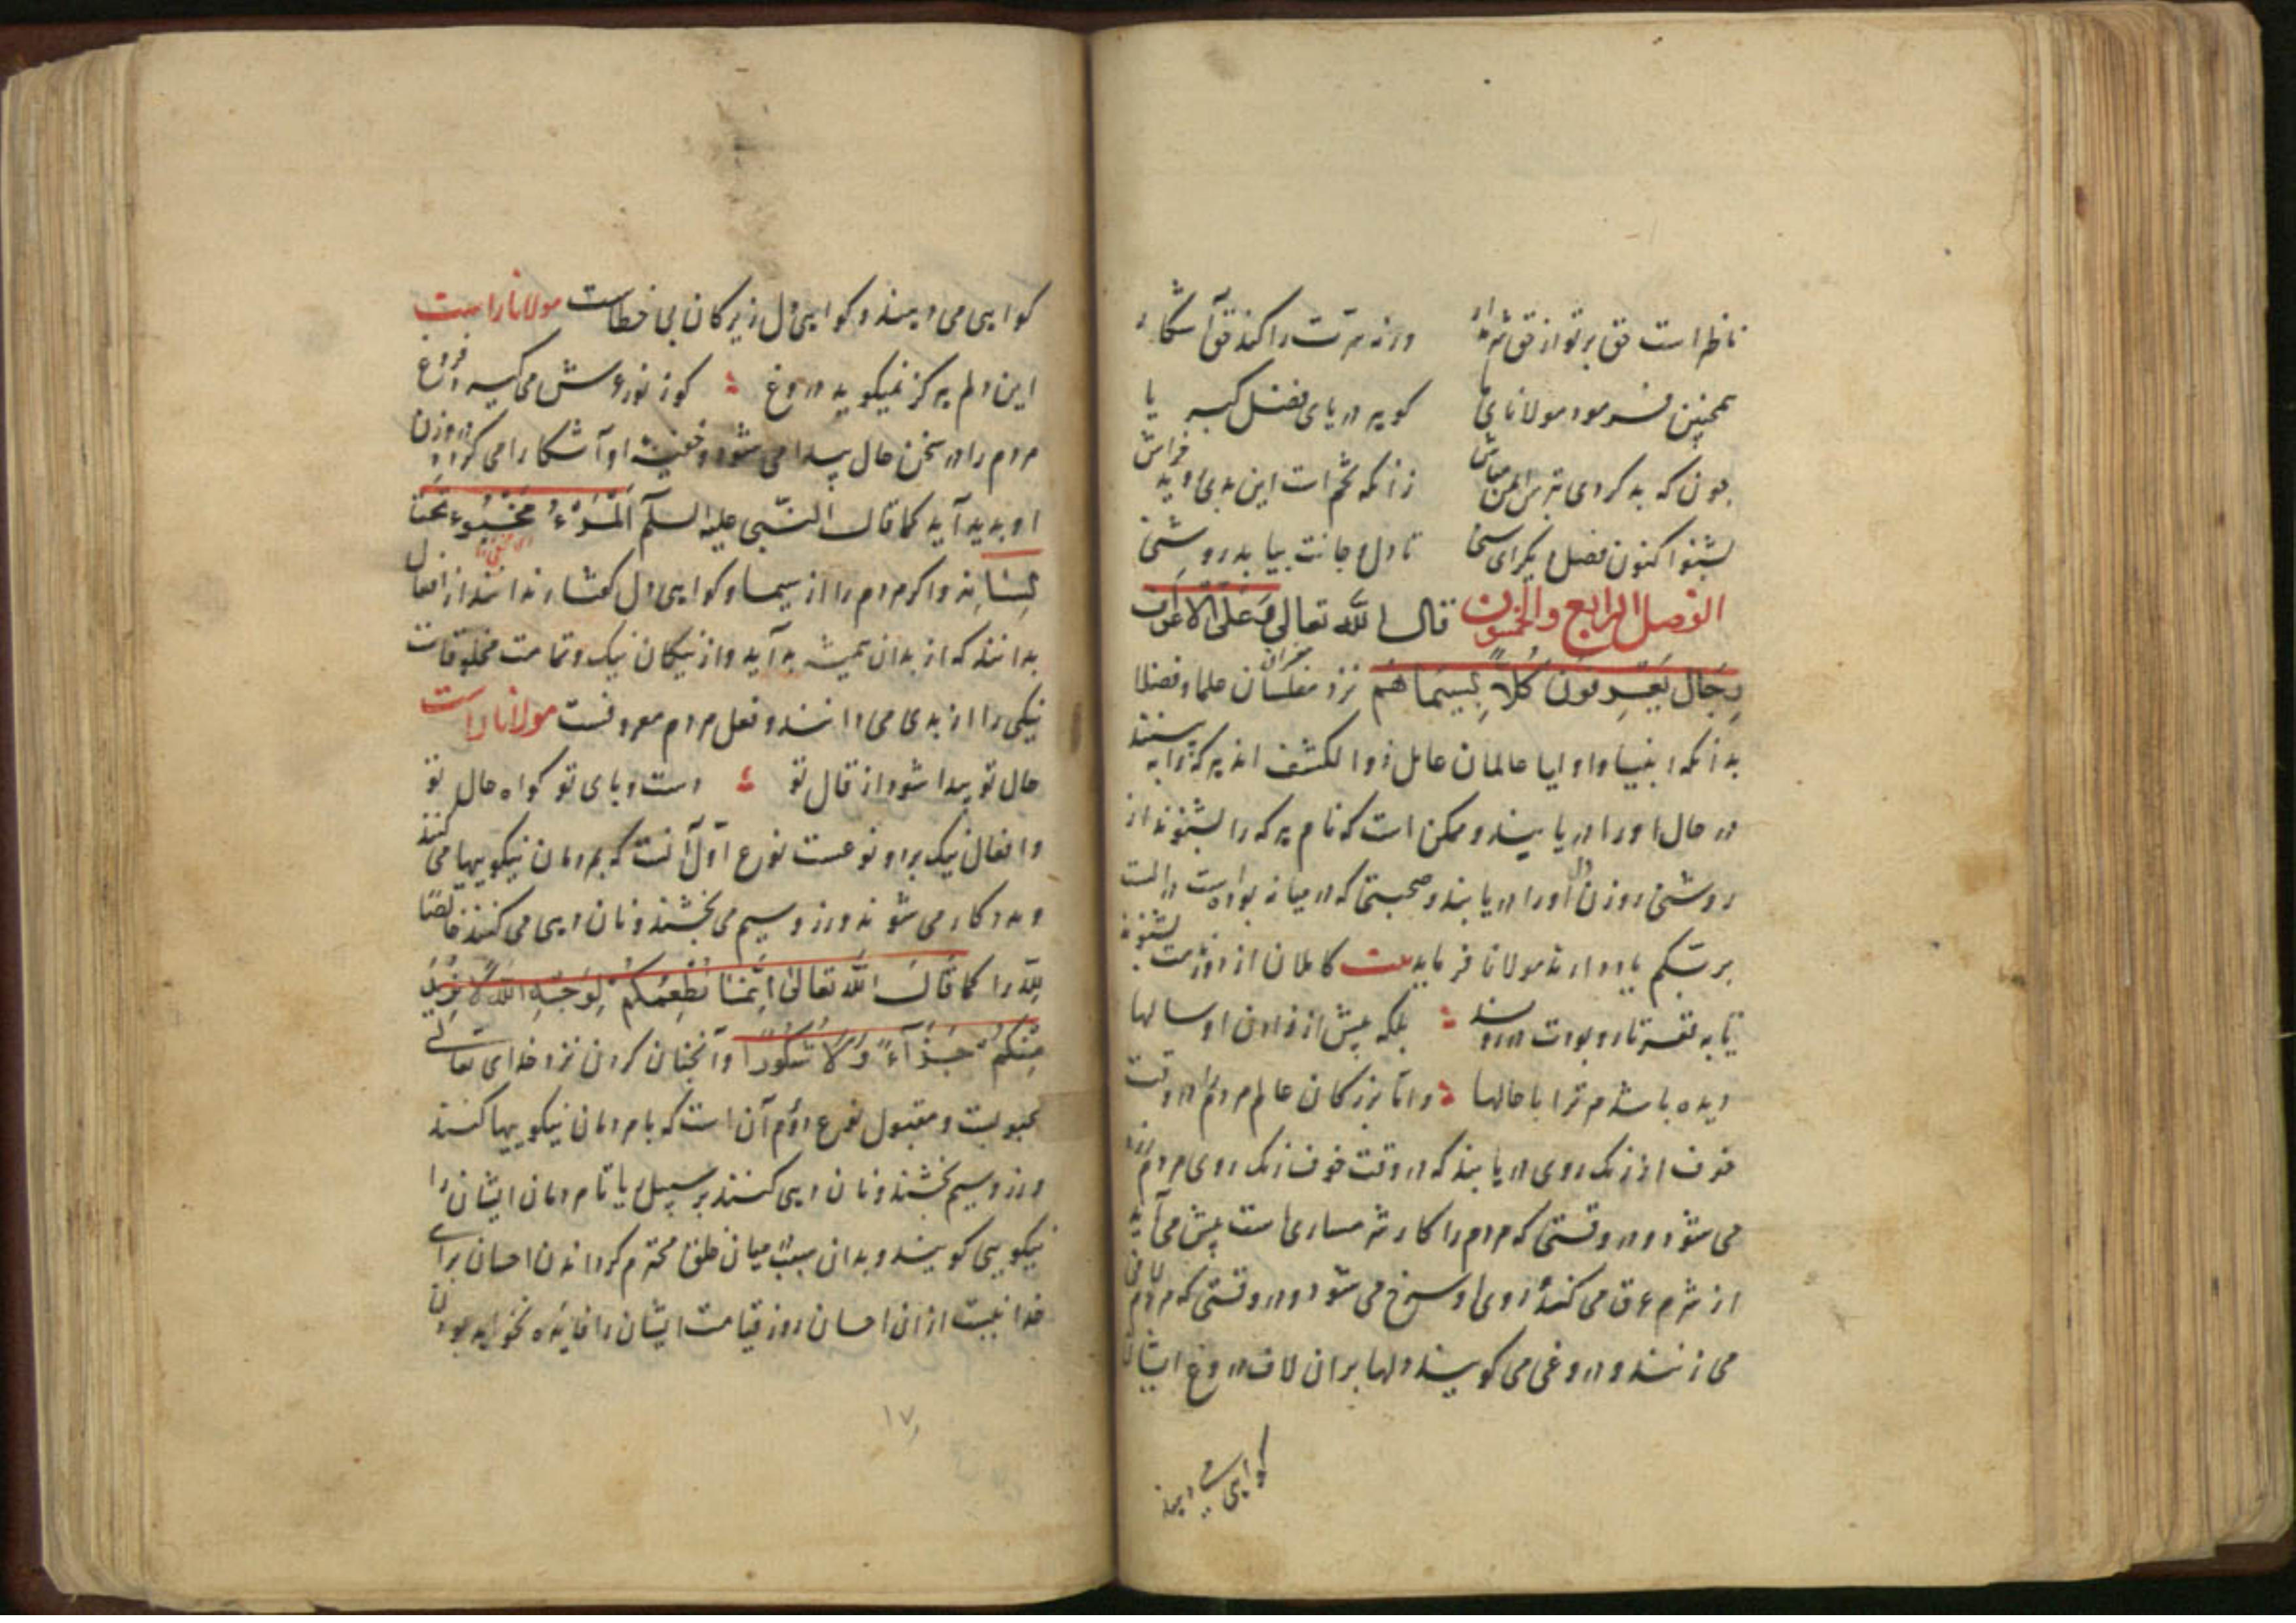 ناظر است حق بر تو از حق شرم دار ورنه سرت را کند حق آشکار
همچنین فرمود مولانای ما کو بر دریای فضل کبریا
چون که بد کردی بترس ایمن مباش زانکه تخم است این بدی و بد خداش
بشنو اکنون فصل دیگر ای سخی تا دل و جانت بیابد روشنی
الفصل الرابع والخمسون قال الله تعالی وَعَلَى الاَعْرَافِ
رِجَالٌ يَعْرِفُونَ كُلاًّ بِسِيمَاهُمْ نزد مفسران علما و فضلا
بدانکه انبیا و اولیا عالمان عامل ذوا لکشف اند هر که را به بینند
در حال او را دریابند و ممکن است که نام هر که را بشنوند از
روشنی روزن دل او را دریابند و صحبتی که در میانه بوده است در الست
بربکم یاد دارند مولانا فرماید بیت کاملان از دور نامت بشنوند
تا به قعر تار و بودت در روند بلکه پیش از زادن او سالها
دیده باشند مر ترا با حالها و اما بزرکان عالم مردم را در وقت
خوف از رنک روی دریابند که در وقت خوف رنک روی مردم زرد
می شود و در وقتی که مردم را کار شرمساری است پیش می آید
از شرم عرق می کند و روی او سرخ می شود و در وقتی که مردم لاف
می زنند و دروغی می کویند دلها بران لاف دروغ ایشان
کواهی می دهند
کواهی می دهند و کواهی دل زیرکان بی خطاست مولانا راست
این دلم هرکز نمیکوید دروغ کوز نور عرش می کیرد فروغ
مردم را در سخن حال پیدا می شود و خفیه او آشکارا می کردد و وزن
او بدید آید کما قال النبی علیه السلم اَلْمَرْءُ مَخْبُوءٌ تَحْتَ
لِسَانِهِ و اکر مردم را از سیما و کواهی دل کفتار ندانند از افعال
بدانند که از بدان همیشه بد آید و از نیکان نیک و تمامت مخلوقات
نیکی را از بدی می دانند و فعل مردم معروفست مولانا راست
حال تو پیدا شود از قال تو دست و پای تو کواه حال تو
و افعال نیک بر دو نوعست نوع اول آنست که بمردمان نیکوییها می کنند
و مددکار می شوند و زر و سیم می بخشند و نان دهی می کنند خالصًا
للّه را کما قَالَ اللّٰه تَعَالىٰ اِنَّمَا نُطْعِمُكُمْ لِوَجْهِ اللّٰهِ لاَ نُرِيدُ
مِنْكُمْ جَزَآءً وَلاَ شُكُورًا و آنچنان کردن نزد خدای تعالی
محبوبست و مقبول نوع دوم آن است که با مردمان نیکوییها کنند
و زر و سیم بخشند و نان دهی کنند بر سبیل ریا تا مردمان ایشان را
نیکویی کویند و بدان سبب میان خلق محترم کردند آن احسان برای
خدا نیست از ان احسان روز قیامت ایشان را فایده نخواهد بودن
١٧